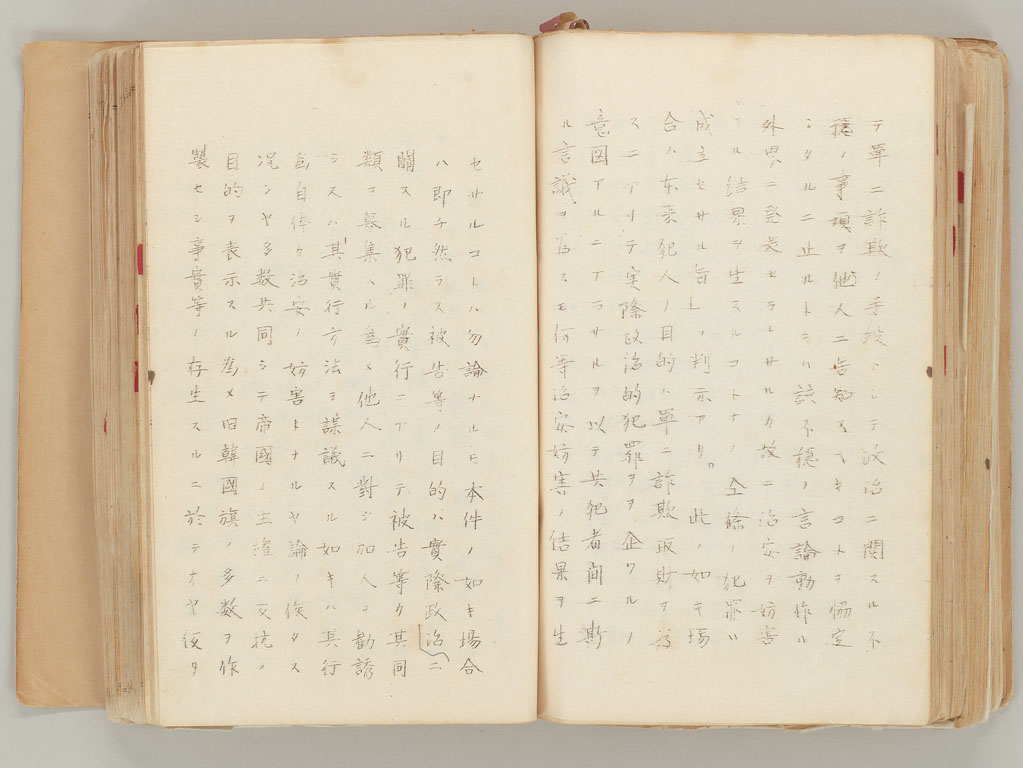 テ單ニ詐欺ノ手段トシテ政治ニ関スル不
穏ノ事項ヲ他人ニ告知スヘキコトヲ協定
シタルニ止ルトキハ該不穏ノ言論動作ハ
外界ニ発表セラレサルカ故ニ治安ヲ妨害
スル結果ヲ生スルコトナク仝條ノ犯罪ハ
成立セサル旨」ノ判示アリ。此ノ如キ場
合ハ本来犯人ノ目的ハ單ニ詐欺取財ヲ為
スニアリテ実際政治的犯罪ヲ企ツルノ
意図アルニアラサルヲ以テ共犯者間ニ斯
ル言議ヲ為スモ何等治安妨害ノ結果ヲ生
セサルコトハ勿論ナルモ本件ノ如キ場合
ハ即チ然ラス被告等ノ目的ハ實際政治ニ
關スル犯罪ノ實行ニアリテ被告等カ其同
類ヲ募集スル為メ他人ニ對シ加入ヲ勧誘
シ又ハ其實行方法ヲ謀議スル如キハ其行
為自体カ治安ノ妨害トナルヤ論ヲ俟タス
況シヤ多数共同シテ帝國ノ主權ニ反抗ノ
目的ヲ表示スル為メ旧韓國旗ノ多数ヲ作
製セシ事實等ノ存在スルニ於テオヤ